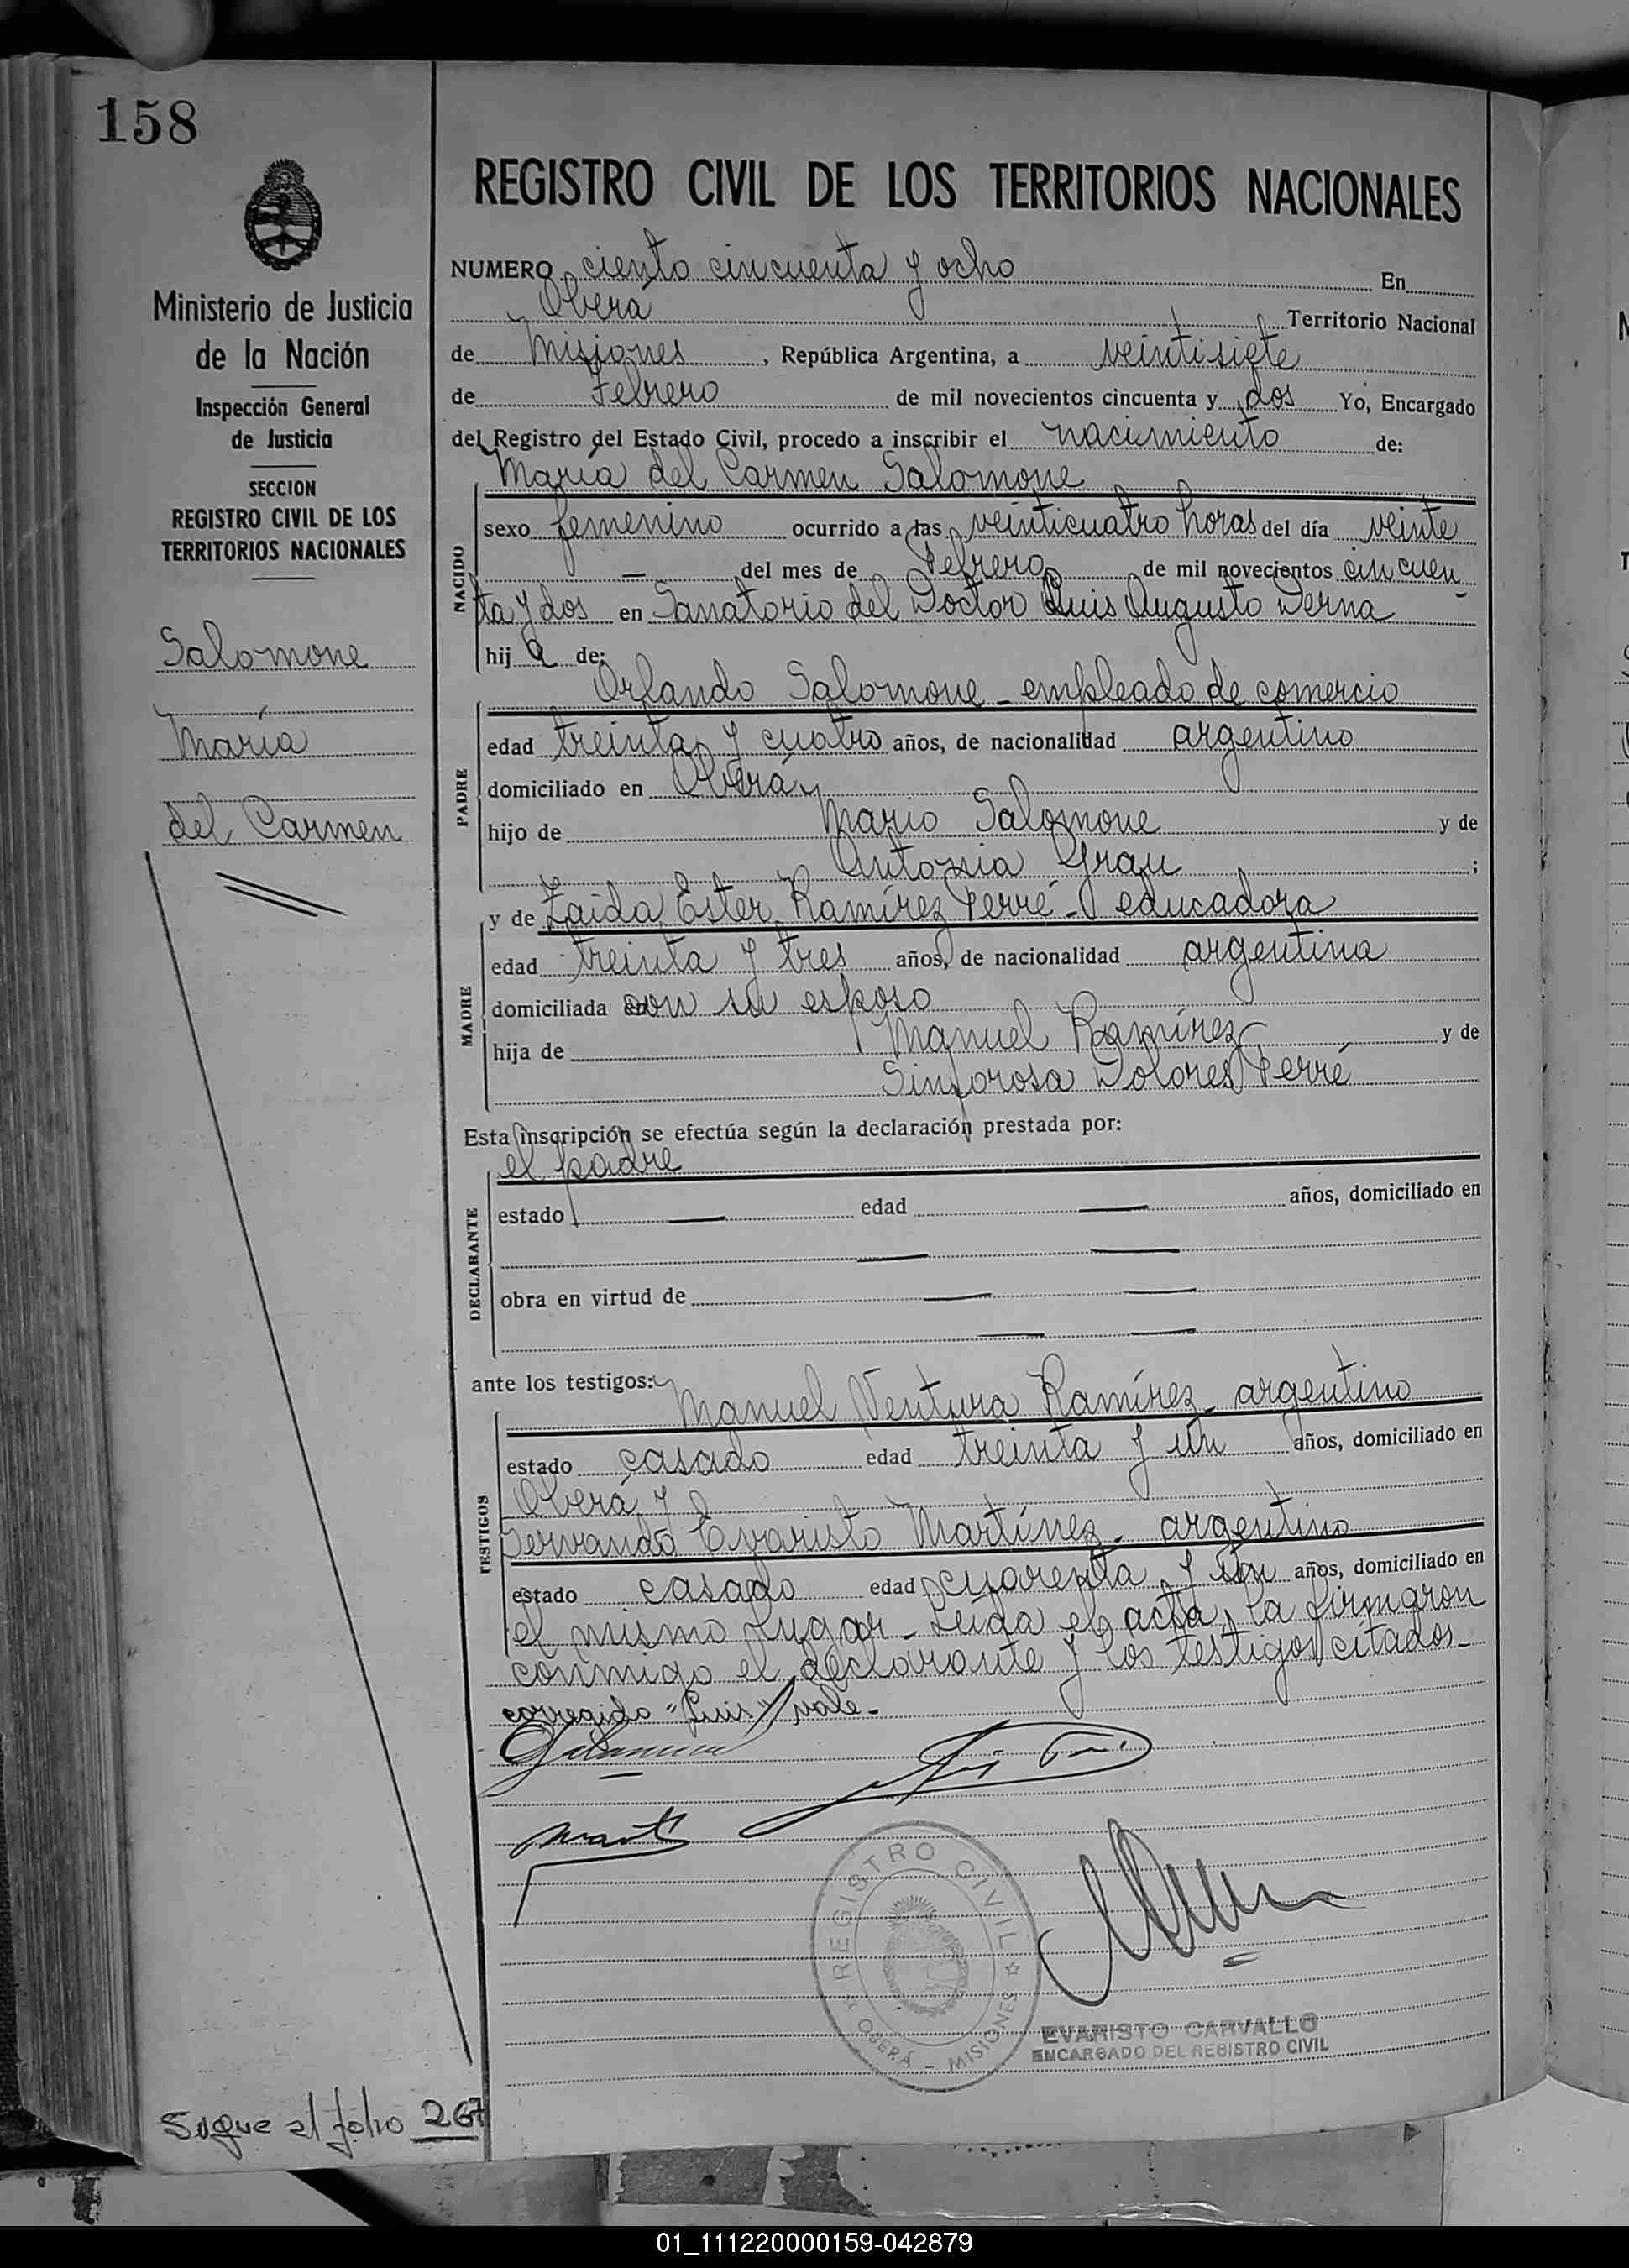 158
Ministerio de Justicia
de la Nación
Inspección General
de Justicia
SECCION
REGISTRO CIVIL DE LOS
TERRITORIOS NACIONALES
Salomone
María
del Carmen
Sigue al folio 267
REGISTRO CIVIL DE LOS TERRITORIOS NACIONALES
NUMERO ciento cincuenta y ocho En
Oberá Territorio Nacional
de Misiones, República Argentina, a veintisiete
de Febrero de mil novecientos cincuenta y dos Yo, Encargado
del Registro del Estado Civil, procedo a inscribir el nacimiento de:
María del Carmen Salomone
NACIDO
sexo femenino ocurrido a las veinticuatro horas del día veinte
— del mes de Febrero de mil novecientos cincuen
ta y dos en Sanatorio del Doctor Luis Augusto Derna
hija de:
Orlando Salomone - empleado de comercio
PADRE
edad treinta y cuatro años, de nacionalidad argentino
domiciliado en Oberá
hijo de Mario Salomone y de
Antonia Grau ;
y de Zaida Ester Ramírez Ferré - educadora
MADRE
edad treinta y tres años, de nacionalidad argentina
domiciliada con su esposo
hija de Manuel Ramírez y de
Sinforosa Dolores Ferré
Esta inscripción se efectúa según la declaración prestada por:
el padre
DECLARANTE
estado — edad — años, domiciliado en
— —
obra en virtud de — —
— —
ante los testigos:
Manuel Ventura Ramírez - argentino
TESTIGOS
estado casado edad treinta y un años, domiciliado en
Oberá y
Servando Evaristo Martínez - argentino
estado casado edad cuarenta y un años, domiciliado en
el mismo lugar - Leída el acta, la firmaron
conmigo el declarante y los testigos citados -
corregido "Luis" vale -
REGISTRO CIVIL
OBERÁ - MISIONES
EVARISTO CARVALLO
ENCARGADO DEL REGISTRO CIVIL
01_111220000159-042879